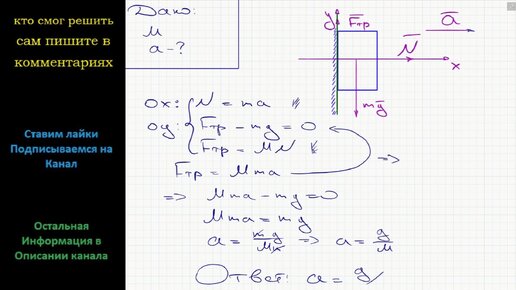 кто смог решить
сам пишите в
комментариях
Ставим лайки
Подписываемся на
Канал
Остальная
Информация в
Описании канала
Дано:
μ
a - ?
y
Fтр
a
N
x
mg
ox: N = ma
oy: Fтр - mg = 0
Fтр = μN
Fтр = μma =>
=> μma - mg = 0
μma = mg
a = mg/μm => a = g/μ
Ответ: a = g/